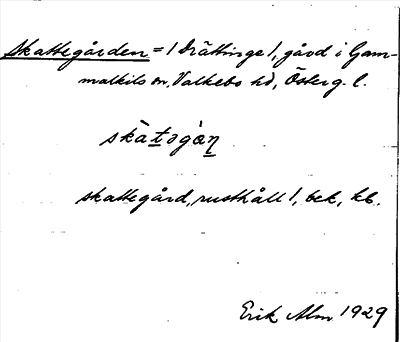 Skattegården = / Drättinge /, gård i Gam-
malkils sn, Valkebo hd, Österg. l.
skàt̲əgὰn̲
skattegård, rusthåll 1, bek, kb.
Erik Alm 1929